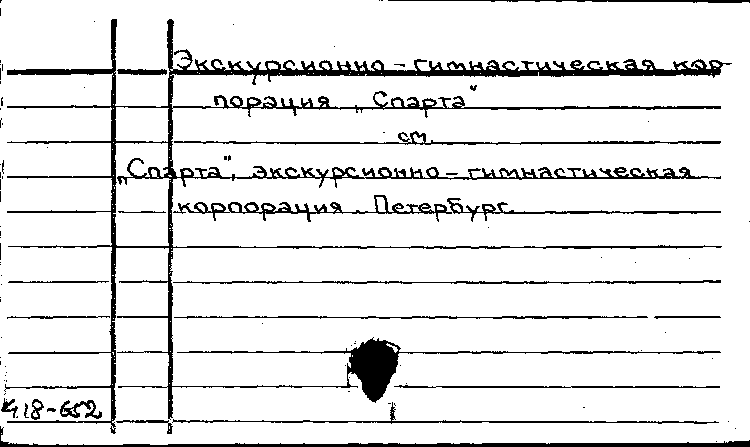 Экскурсионно-гимнастическая кор-
порация „Спарта"
см.
„Спарта", экскурсионно-гимнастическая
корпорация. Петербург.
418-652